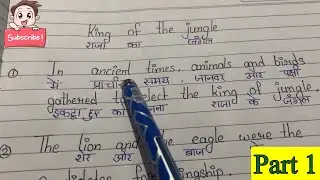 Subscribe!
King of the jungle
राजा का जंगल
① In ancient times, animals and birds
में प्राचीन समय, जानवर और पक्षी
gathered to elect the king of jungle.
इकट्ठा हुए को चुनना राजा के जंगल
② The lion and the eagle were the
शेर और बाज
for kingship.
Part 1